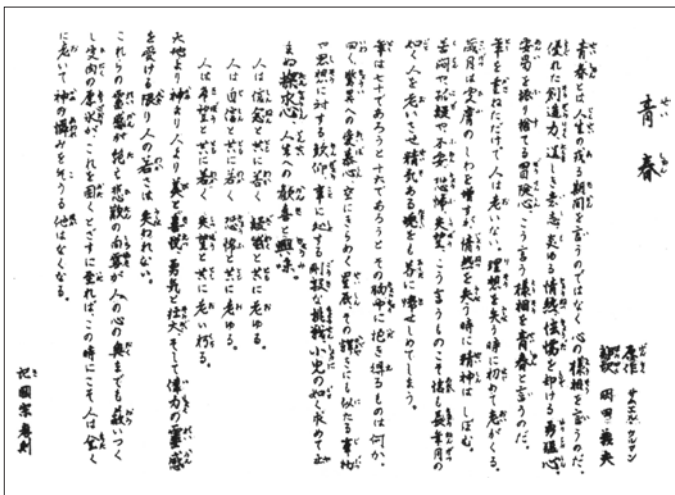 青春
原作 サムエル ウルマン
翻訳 岡田義夫
青春とは人生の或る期間を言うのではなく心の様相を言うのだ。
優れた創造力、逞しき意志、炎ゆる情熱、怯懦を却ける勇猛心、
安易を振り捨てる冒険心、こう言う様相を青春と言うのだ。
年を重ねただけで人は老いない。理想を失う時に初めて老がくる。
歳月は皮膚のしわを増すが、情熱を失う時に精神はしぼむ。
苦悶や、狐疑や、不安、恐怖、失望、こう言うものこそ恰も長年月の
如く人を老いさせ、精気ある魂をも芥に帰せしめてしまう。
年は七十であろうと十六であろうと、その胸中に抱き得るものは何か。
曰く、驚異への愛慕心、空にきらめく星辰、その輝きにも似たる事物
や思想に対する欽仰、事に処する剛毅な挑戦、小児の如く求めて止
まぬ探求心、人生への歓喜と興味。
人は信念と共に若く 疑惑と共に老ゆる。
人は自信と共に若く 恐怖と共に老ゆる。
人は希望と共に若く 失望と共に老い朽る。
大地より、神より、人より、美と喜悦、勇気と壮大、そして偉力の霊感
を受ける限り人の若さは失われない。
これらの霊感が絶え、悲歎の白雪が人の心の奥までも蔽いつく
し、皮肉の厚氷がこれを固くとざすに至れば、この時にこそ人は全く
に老いて神の憐みをそうる他はなくなる。
記 国宗